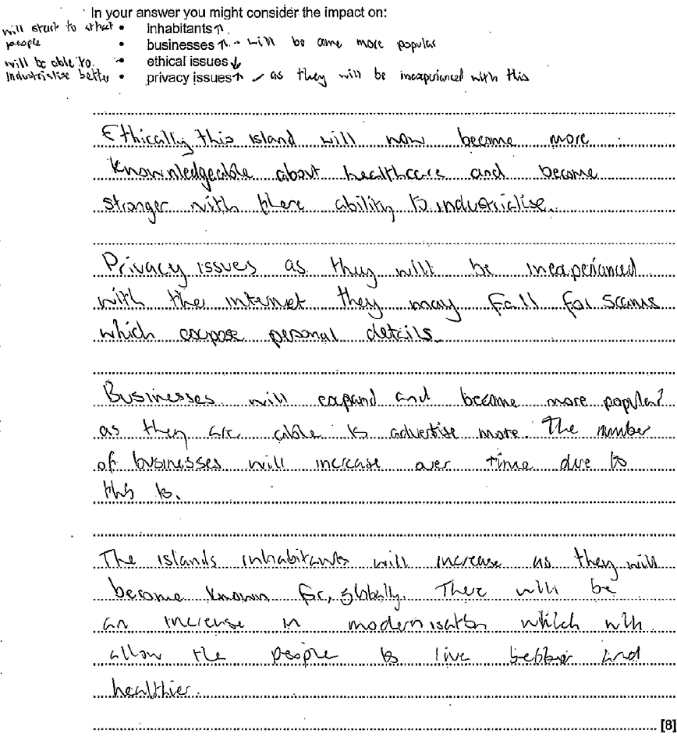 In your answer you might consider the impact on:
will start to attract people
• inhabitants↑
• businesses↑ - will be come more popular
will be able to industrialise better
• ethical issues↓
• privacy issues↑ as they will be inexperienced with this
Ethically this island will now become more
knownledgeable about healthcare and become
stronger with there ability to industrialise.
Privacy issues as they will be inexperianced
with the internet they may fall for scams
which expose personal details.
Businesses will expand and become more popular
as they are able to advertise more. The number
of businesses will increase over time due to
this to.
The islands inhabitants will increase as they will
become known for, globally. There will be
an increase in modernisation which will
allow the people to live better and
healthier.
[8]